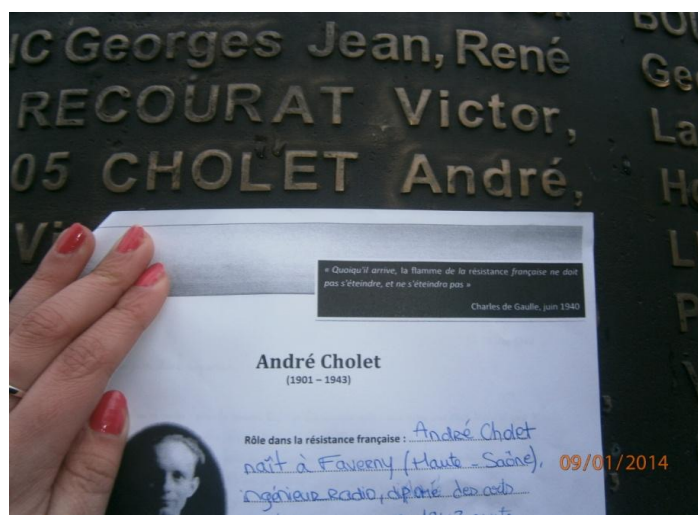 Georges Jean, René
RECOURAT Victor,
05 CHOLET André,
« Quoiqu'il arrive, la flamme de la résistance française ne doit
pas s'éteindre, et ne s'éteindra pas »
Charles de Gaulle, juin 1940
André Cholet
(1901 – 1943)
Rôle dans la résistance française : André Cholet
naît à Faverny (Haute-Saône),
ingénieur radio, diplomé des
09/01/2014